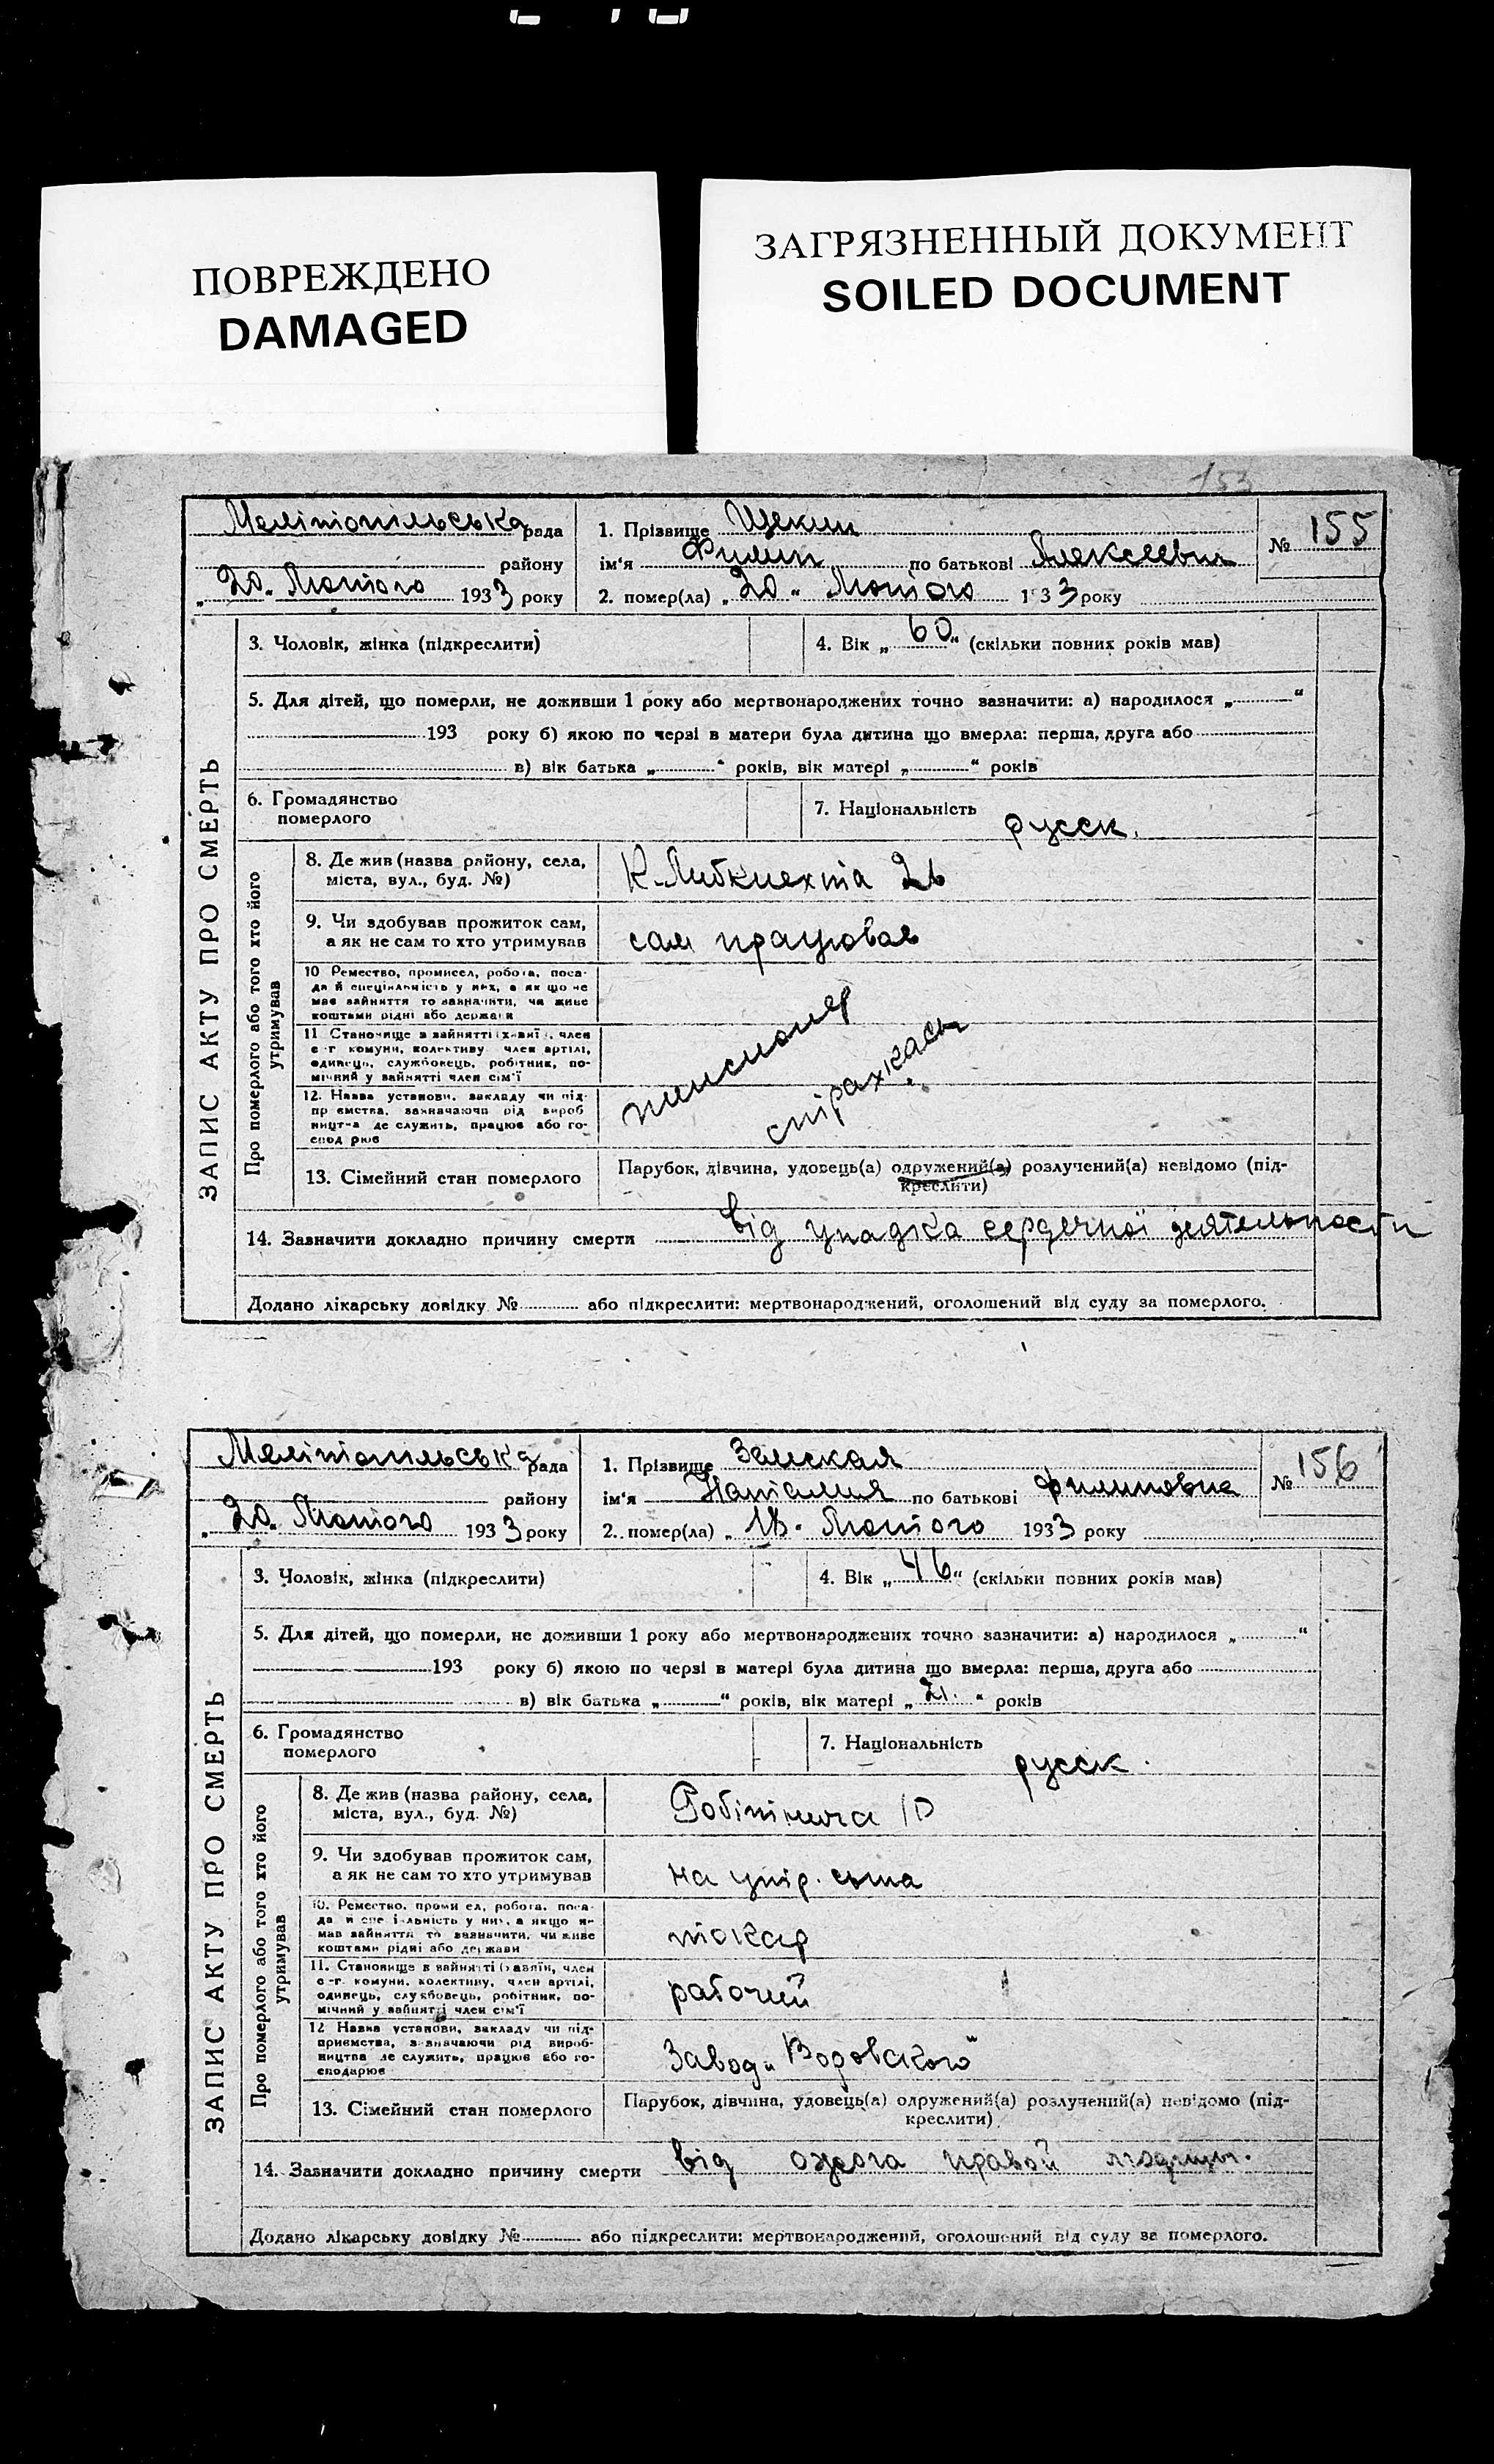 ПОВРЕЖДЕНО
DAMAGED
ЗАГРЯЗНЕННЫЙ ДОКУМЕНТ
SOILED DOCUMENT
153
Мелітопільська рада
району
„20“ Лютого 1933 року
1. Прізвище Щекин
ім'я Филип по батькові Алексеевич
2. помер(ла) „20“ Лютого 1933 року
№ 155
ЗАПИС АКТУ ПРО СМЕРТЬ
3. Чоловік, жінка (підкреслити)
4. Вік „60“ (скільки повних років мав)
5. Для дітей, що померли, не доживши 1 року або мертвонароджених точно зазначити: а) народилося „ “
193 року б) якою по черзі в матери була дитина що вмерла: перша, друга або
в) вік батька „ “ років, вік матері „ “ років
6. Громадянство
померлого
7. Національність русск.
Про померлого або того хто його
утримував
8. Де жив (назва району, села,
міста, вул., буд. №)
К. Либкнехта
9. Чи здобував прожиток сам,
а як не сам то хто утримував
сам працював
10 Ремество, промисел, робота, поса-
да й спеціяльність у них, а як що не
має зайняття то зазначити, чи живе
коштами рідні або держави
11 Становище в зайнятті (хазяїн, член
с.-г комуни, колективу член артілі,
одинець, службовець, робітник, по-
мічний у зайнятті член сім'ї
12. Назва установи, закладу чи під-
приємства, зазначаючи рід вироб
ництва де служить, працює або го-
спод рює
пенсионер
страхкасы
13. Сімейний стан померлого
Парубок, дівчина, удовець(а) одружений(а) розлучений(а) невідомо (під-
креслити)
14. Зазначити докладно причину смерти від упадка сердечної деятельности
Додано лікарську довідку № або підкреслити: мертвонароджений, оголошений від суду за померлого.
Мелітопільська рада
району
„20“ Лютого 1933 року
1. Прізвище Земская
ім'я Наталия по батькові Филиповна
2. помер(ла) „18“ Лютого 1933 року
№ 156
ЗАПИС АКТУ ПРО СМЕРТЬ
3. Чоловік, жінка (підкреслити)
4. Вік „46“ (скільки повних років мав)
5. Для дітей, що померли, не доживши 1 року або мертвонароджених точно зазначити: а) народилося „ “
193 року б) якою по черзі в матері була дитина що вмерла: перша, друга або
в) вік батька „ “ років, вік матері „21.“ років
6. Громадянство
померлого
7. Національність русск.
Про померлого або того хто його
утримував
8. Де жив (назва району, села,
міста, вул., буд. №)
10
9. Чи здобував прожиток сам,
а як не сам то хто утримував
на утр. сына
10. Ремество, проми ел, робота, поса-
да й спеціяльність у них, а якщо не
мав зайняття то зазначити, чи живе
коштами рідні або держави
токар
11. Становище в зайнятті (хазяїн, член
с.-г. комуни, колективу, член артілі,
одинець, службовець, робітник, по-
мічний у зайнятті член сім'ї
рабочий
12 Назва установи, закладу чи під-
приємства, зазначаючи рід вироб-
ництва де служить, працює або го-
сподарює
Завод „Воровского“
13. Сімейний стан померлого
Парубок, дівчина, удовець(а) одружений(а) розлучений(а) невідомо (під-
креслити)
14. Зазначити докладно причину смерти від ожога правой
Додано лікарську довідку № або підкреслити: мертвонароджений, оголошений від суду за померлого.